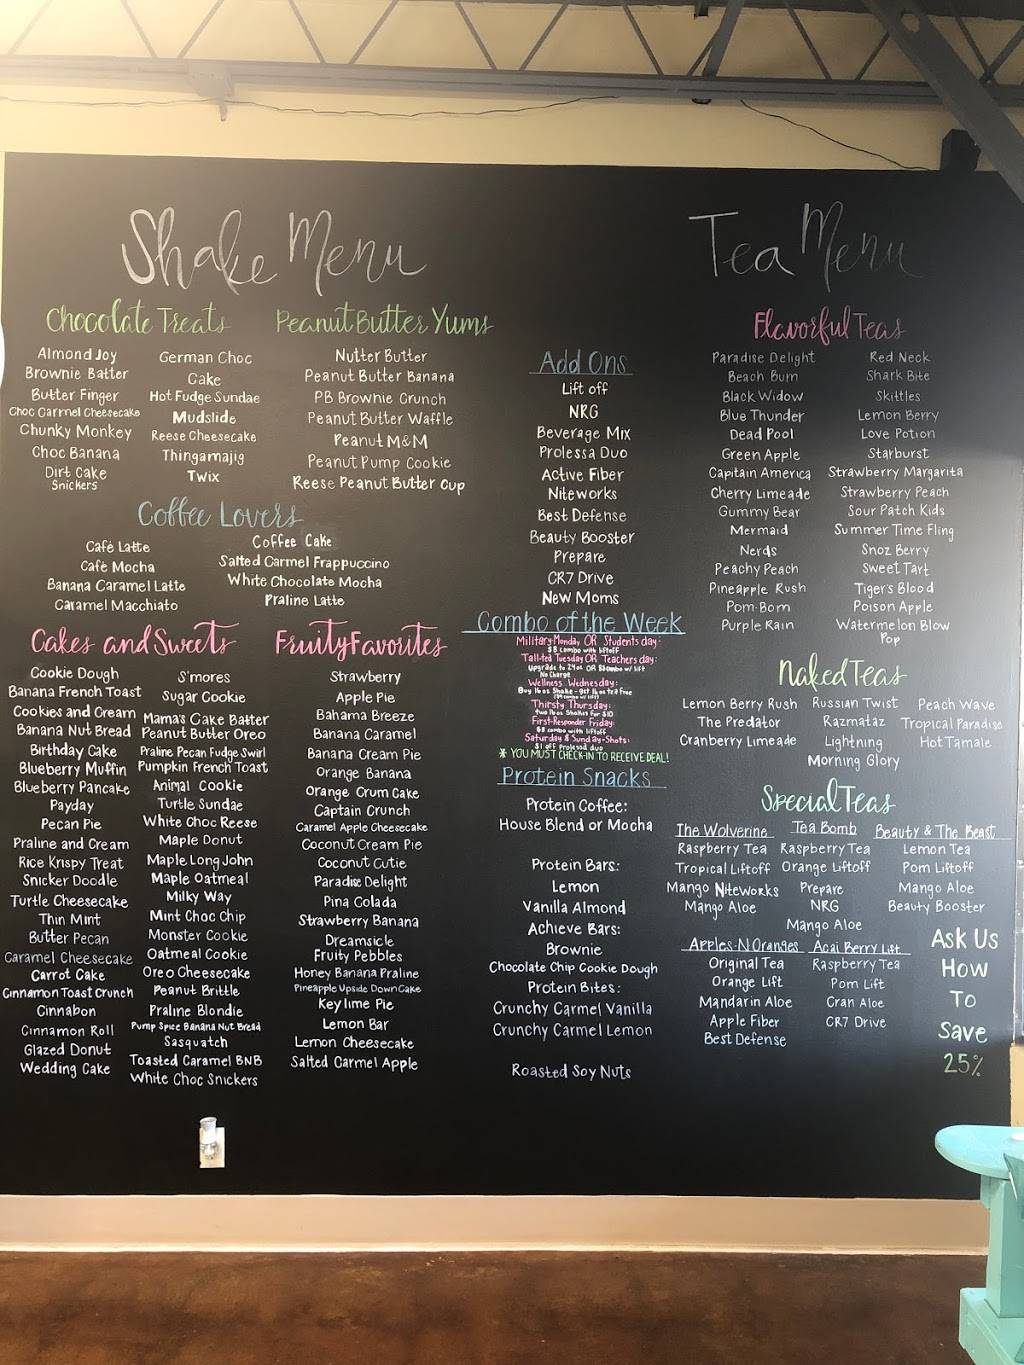 Shake Menu
Chocolate Treats
Almond Joy
Brownie Batter
Butter Finger
Choc Carmel Cheesecake
Chunky Monkey
Choc Banana
Dirt Cake
Snickers
German Choc
Cake
Hot Fudge Sundae
Mudslide
Reese Cheesecake
Thingamajig
Twix
Peanut Butter Yums
Nutter Butter
Peanut Butter Banana
PB Brownie Crunch
Peanut Butter Waffle
Peanut M&M
Peanut Pump Cookie
Reese Peanut Butter Cup
Coffee Lovers
Café Latte
Café Mocha
Banana Caramel Latte
Caramel Macchiato
Coffee Cake
Salted Carmel Frappuccino
White Chocolate Mocha
Praline Latte
Cakes and Sweets
Cookie Dough
Banana French Toast
Cookies and Cream
Banana Nut Bread
Birthday Cake
Blueberry Muffin
Blueberry Pancake
Payday
Pecan Pie
Praline and Cream
Rice Krispy Treat
Snicker Doodle
Turtle Cheesecake
Thin Mint
Butter Pecan
Caramel Cheesecake
Carrot Cake
Cinnamon Toast Crunch
Cinnabon
Cinnamon Roll
Glazed Donut
Wedding Cake
S'mores
Sugar Cookie
Mama's Cake Batter
Peanut Butter Oreo
Praline Pecan Fudge Swirl
Pumpkin French Toast
Animal Cookie
Turtle Sundae
White Choc Reese
Maple Donut
Maple Long John
Maple Oatmeal
Milky Way
Mint Choc Chip
Monster Cookie
Oatmeal Cookie
Oreo Cheesecake
Peanut Brittle
Praline Blondie
Pump Spice Banana Nut Bread
Sasquatch
Toasted Caramel BNB
White Choc Snickers
Fruity Favorites
Strawberry
Apple Pie
Bahama Breeze
Banana Caramel
Banana Cream Pie
Orange Banana
Orange Crum Cake
Captain Crunch
Caramel Apple Cheesecake
Coconut Cream Pie
Coconut Cutie
Paradise Delight
Pina Colada
Strawberry Banana
Dreamsicle
Fruity Pebbles
Honey Banana Praline
Pineapple Upside Down Cake
Key lime Pie
Lemon Bar
Lemon Cheesecake
Salted Carmel Apple
Add Ons
Lift off
NRG
Beverage Mix
Prolessa Duo
Active Fiber
Niteworks
Best Defense
Beauty Booster
Prepare
CR7 Drive
New Moms
Combo of the Week
Military Monday OR Students day:
$8 combo with liftoff
Tall-tea Tuesday OR Teachers day:
Upgrade to 24oz OR $8 combo w/ lift
No Charge
Wellness Wednesday:
Buy 16 oz Shake - get 16 oz tea free
Thirsty Thursday:
two 16oz Shakes for $10
First-Responder Friday:
$8 combo with liftoff
Saturday & Sunday-Shots:
$1 off Prolessa duo
* YOU MUST CHECK-IN TO RECEIVE DEAL!
Protein Snacks
Protein Coffee:
House Blend or Mocha
Protein Bars:
Lemon
Vanilla Almond
Achieve Bars:
Brownie
Chocolate Chip Cookie Dough
Protein Bites:
Crunchy Carmel Vanilla
Crunchy Carmel Lemon
Roasted Soy Nuts
Tea Menu
Flavorful Teas
Paradise Delight
Beach Bum
Black Widow
Blue Thunder
Dead Pool
Green Apple
Capitain America
Cherry Limeade
Gummy Bear
Mermaid
Nerds
Peachy Peach
Pineapple Rush
Pom-Bom
Purple Rain
Red Neck
Shark Bite
Skittles
Lemon Berry
Love Potion
Starburst
Strawberry Margarita
Strawberry Peach
Sour Patch Kids
Summer Time Fling
Snoz Berry
Sweet Tart
Tiger's Blood
Poison Apple
Watermelon Blow
Pop
Naked Teas
Lemon Berry Rush
The Predator
Cranberry Limeade
Russian Twist
Razmataz
Lightning
Morning Glory
Peach Wave
Tropical Paradise
Hot Tamale
Special Teas
The Wolverine
Raspberry Tea
Tropical Liftoff
Mango Niteworks
Mango Aloe
Tea Bomb
Raspberry Tea
Orange Liftoff
Prepare
NRG
Mango Aloe
Beauty & The Beast
Lemon Tea
Pom Liftoff
Mango Aloe
Beauty Booster
Apples-N-Oranges
Original Tea
Orange Lift
Mandarin Aloe
Apple Fiber
Best Defense
Acai Berry Lift
Raspberry Tea
Pom Lift
Cran Aloe
CR7 Drive
Ask Us
How
To
Save
25%